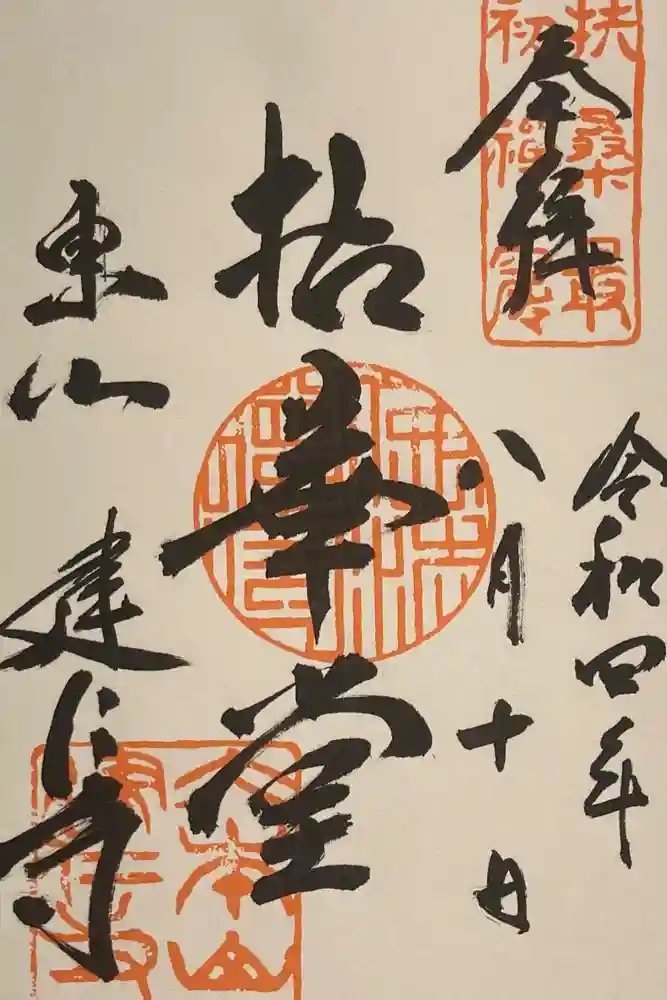 奉拝
扶桑最
初禅窟
令和四年
八月十日
拈華堂
東山
建仁寺
大本山
建仁寺